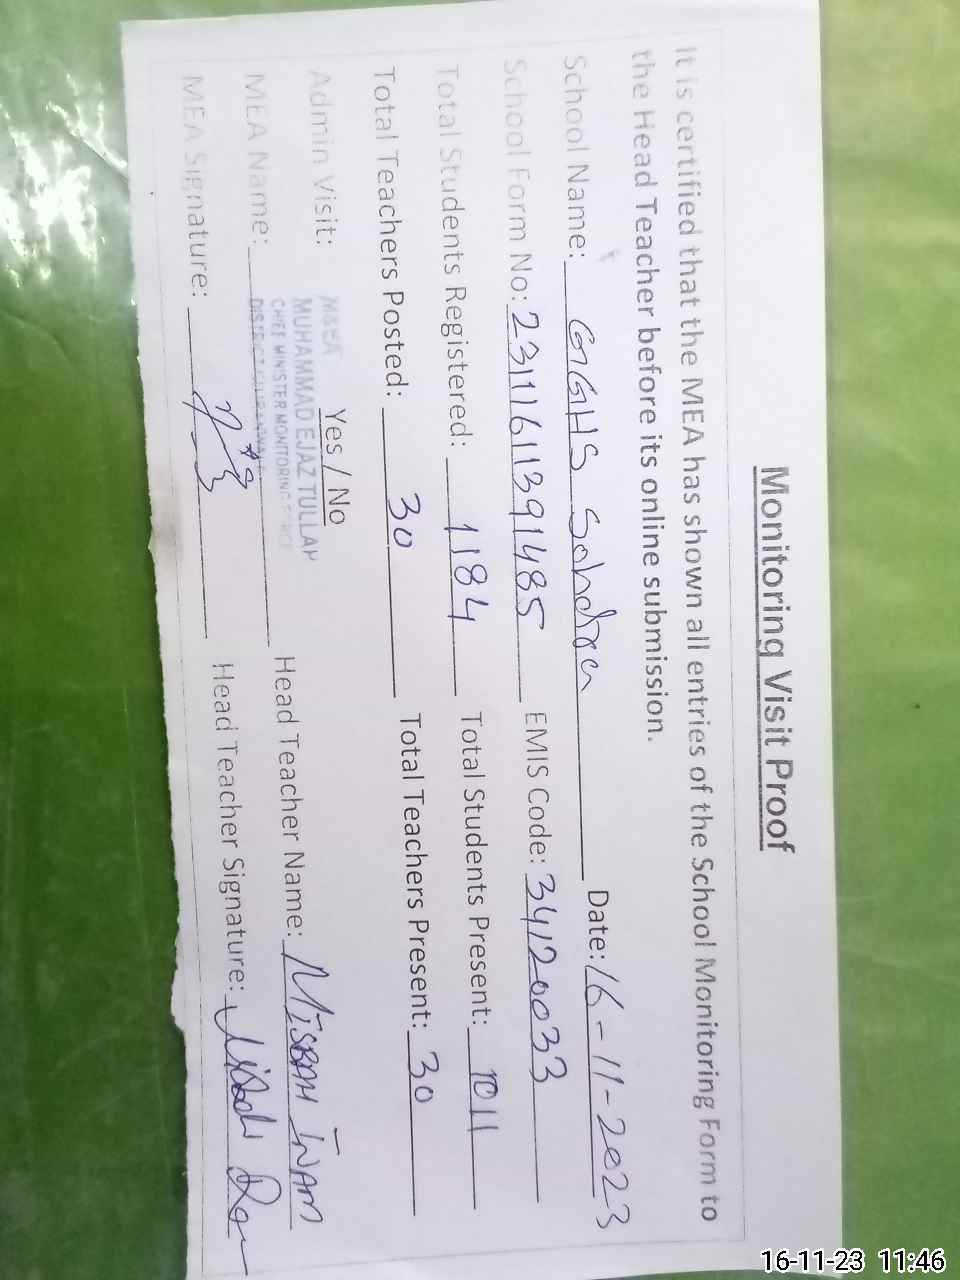 Monitoring Visit Proof
It is certified that the MEA has shown all entries of the School Monitoring Form to
the Head Teacher before its online submission.
School Name: GGHS Sohdra Date: 16-11-2023
School Form No: 23111611391485 EMIS Code: 34120033
Total Students Registered: 1184 Total Students Present: 1011
Total Teachers Posted: 30 Total Teachers Present: 30
Admin Visit: Yes / No
M&EA
MUHAMMAD EJAZ TULLAH
CHIEF MINISTER MONITORING FORCE
DISTRICT GUJRANWALA
MEA Name: Head Teacher Name: MISBAH INAM
MEA Signature: Head Teacher Signature:
16-11-23 11:46